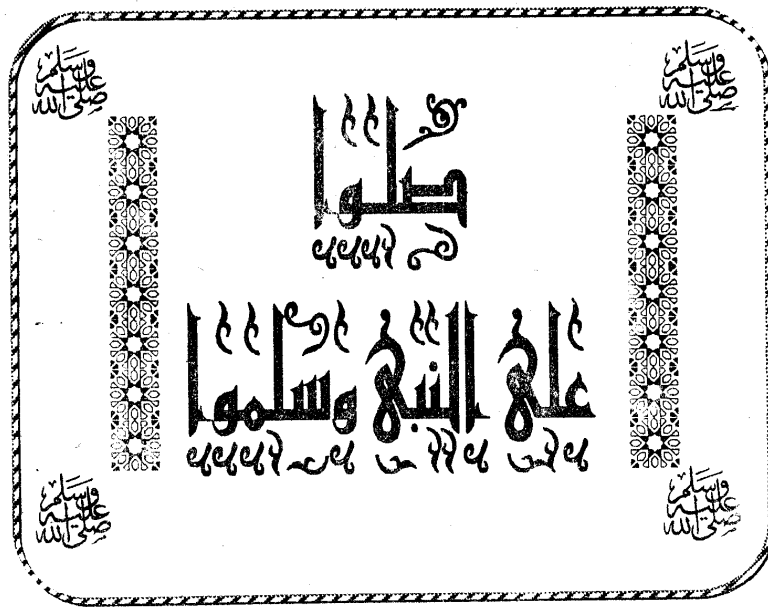 صلى الله عليه وسلم
صلى الله عليه وسلم
صلوا
على النبي وسلموا
صلى الله عليه وسلم
صلى الله عليه وسلم